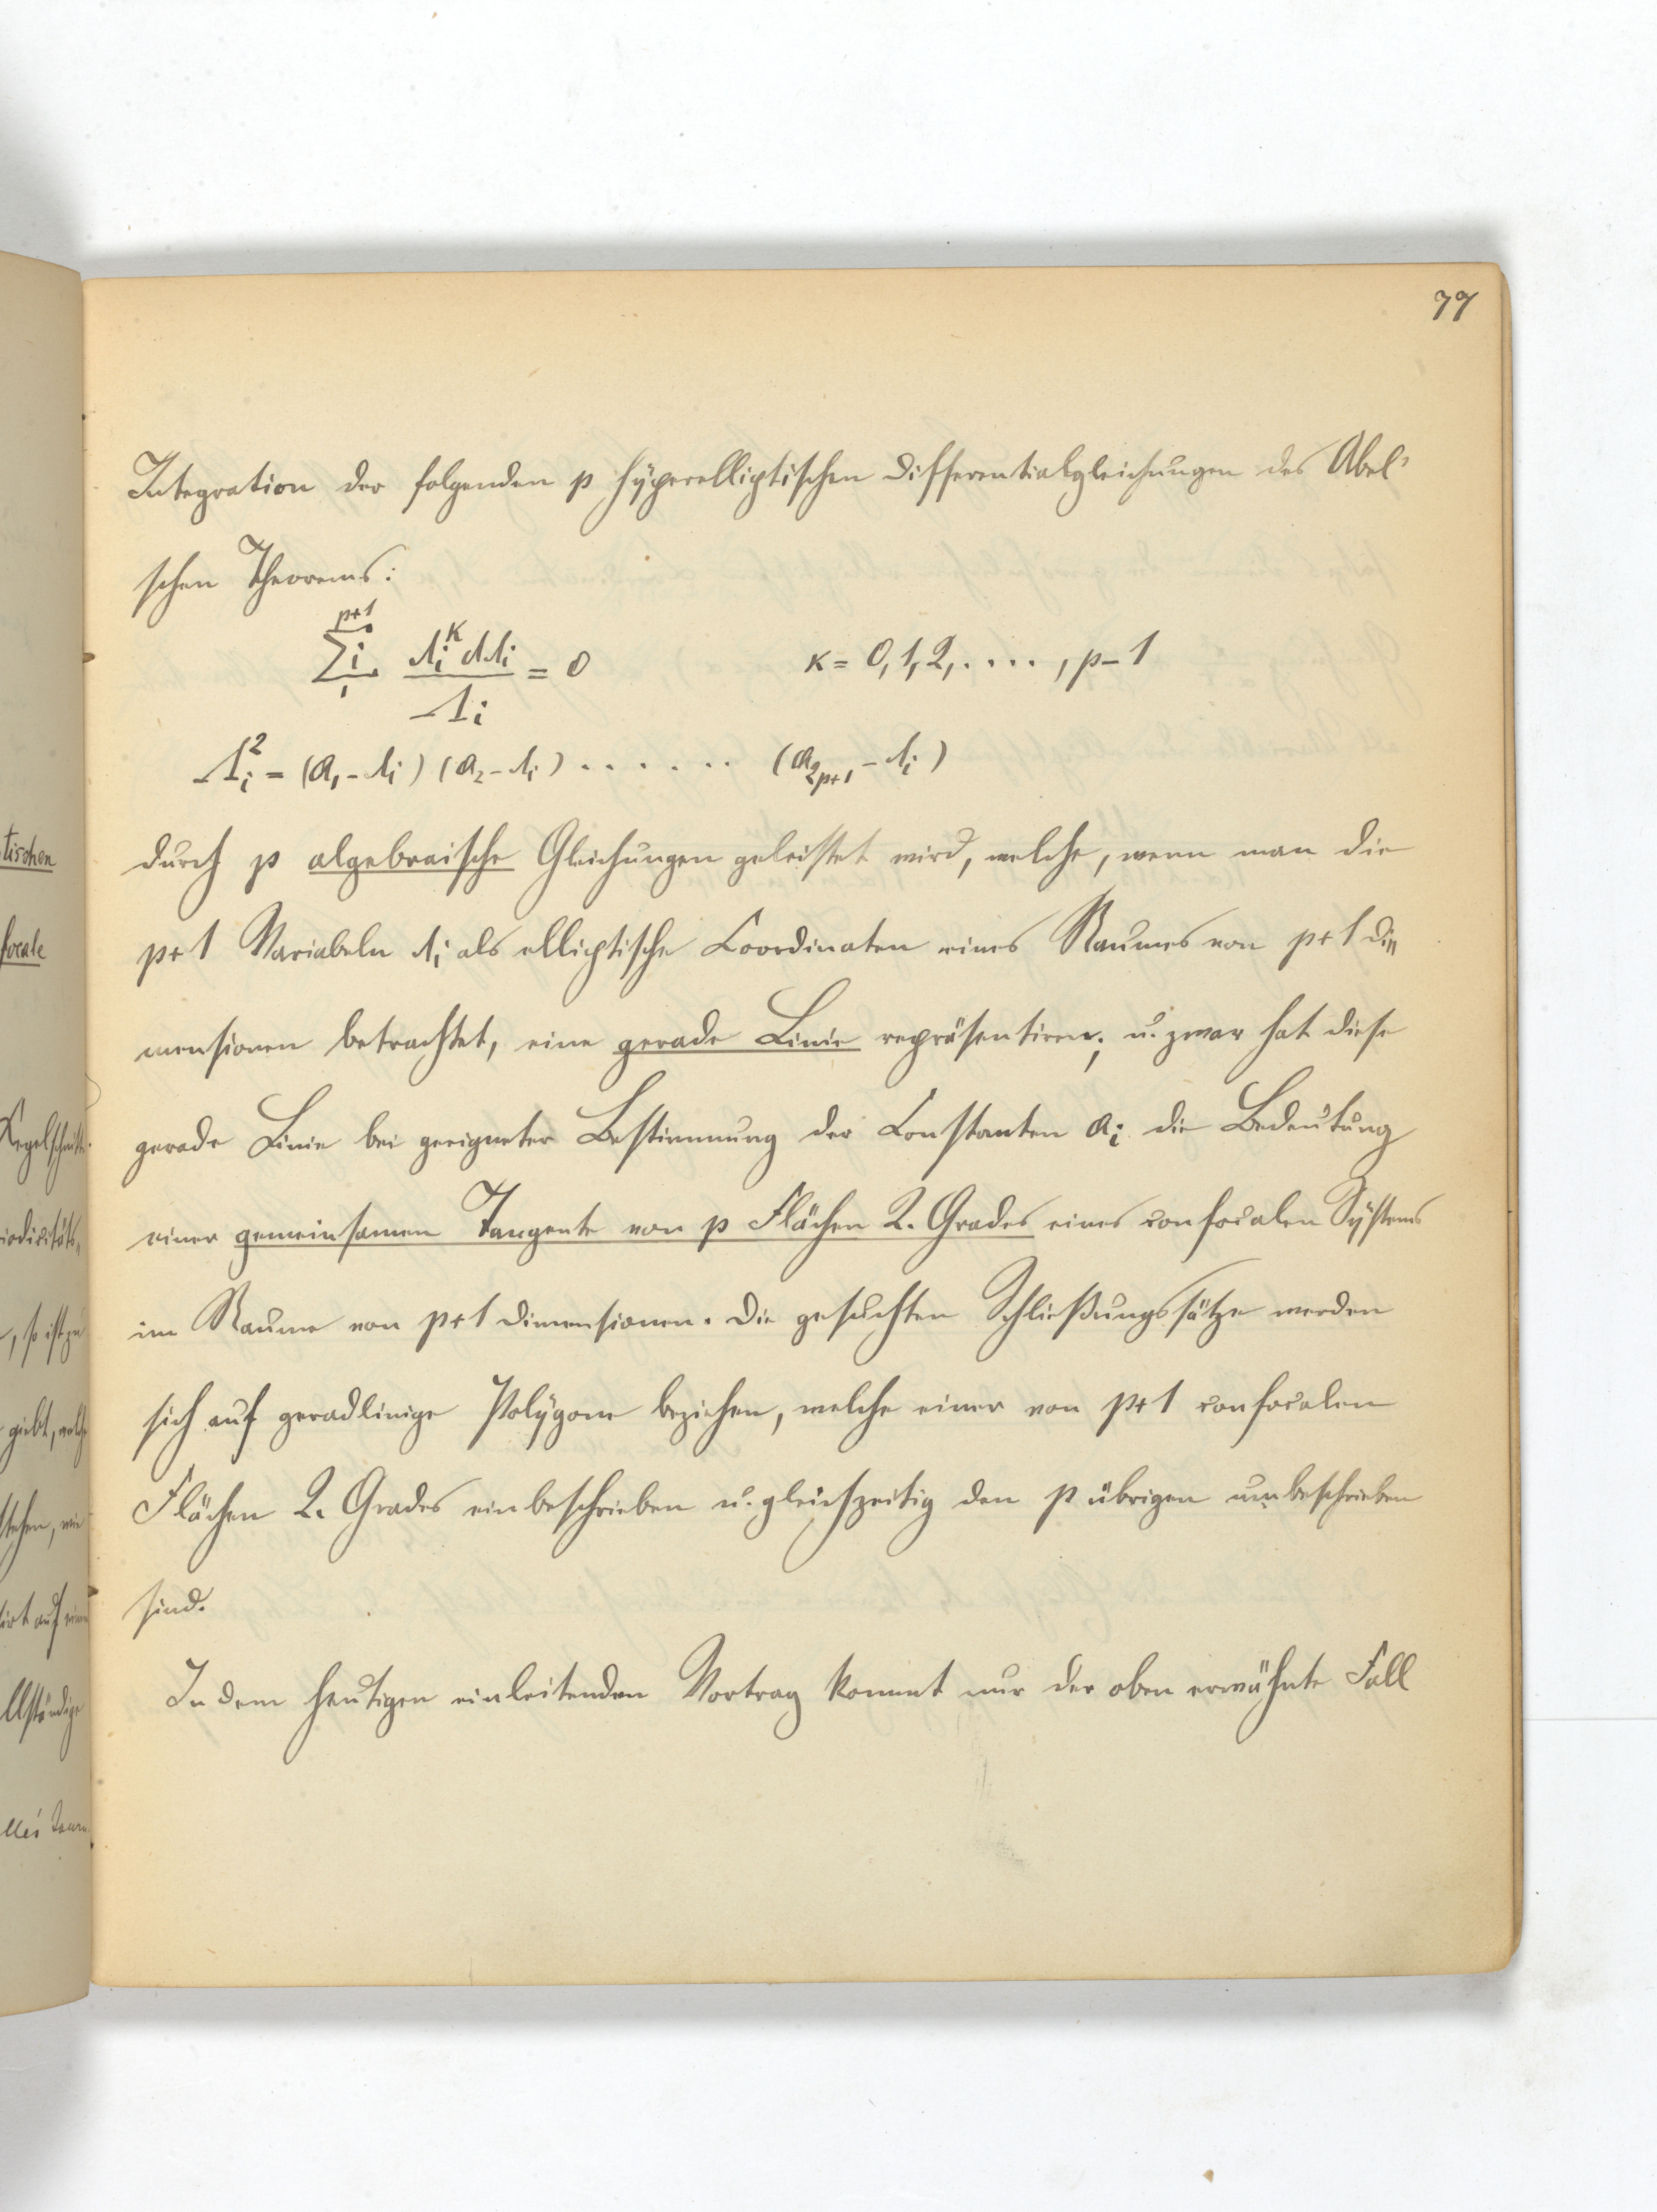 77
Integration der folgenden p hyperelliptischen Differentialgleichungen des Abel'
schen Theorems:
\sum_{1}^{p+1}{}_i \frac{λ_i^κ dλ_i}{Λ_i} = 0 κ = 0, 1, 2, . . . . , p–1
Λ_i^2 = (a_1 – λ_i) (a_2 – λ_i) . . . . . . (a_{2p+1} – λ_i)
durch p algebraische Gleichungen geleistet wird, welche, wenn man die
p+1 Variabeln λ_i als elliptische Coordinaten eines Raumes von p+1 Di„
mensionen betrachtet, eine gerade Linie repräsentiren; u. zwar hat diese
gerade Linie bei geeigneter Bestimmung der Constanten a_i die Bedeutung
einer gemeinsamen Tangente von p Flächen 2. Grades eines confocalen Systems
im Raume von p+1 Dimensionen. Die gesuchten Schließungssätze werden
sich auf geradlinige Polygone beziehen, welche einer von p+1 confocalen
Flächen 2. Grades einbeschrieben u. gleichzeitig den p übrigen umbeschrieben
sind.
In dem heutigen einleitenden Vortrag kommt nur der oben erwähnte Fall
tischen
focale
Kegelschnitte.
iodicitäts„
, so ist zu
giebt, welche
stehen, wie
irt auf einen
llständige
lles Journ.